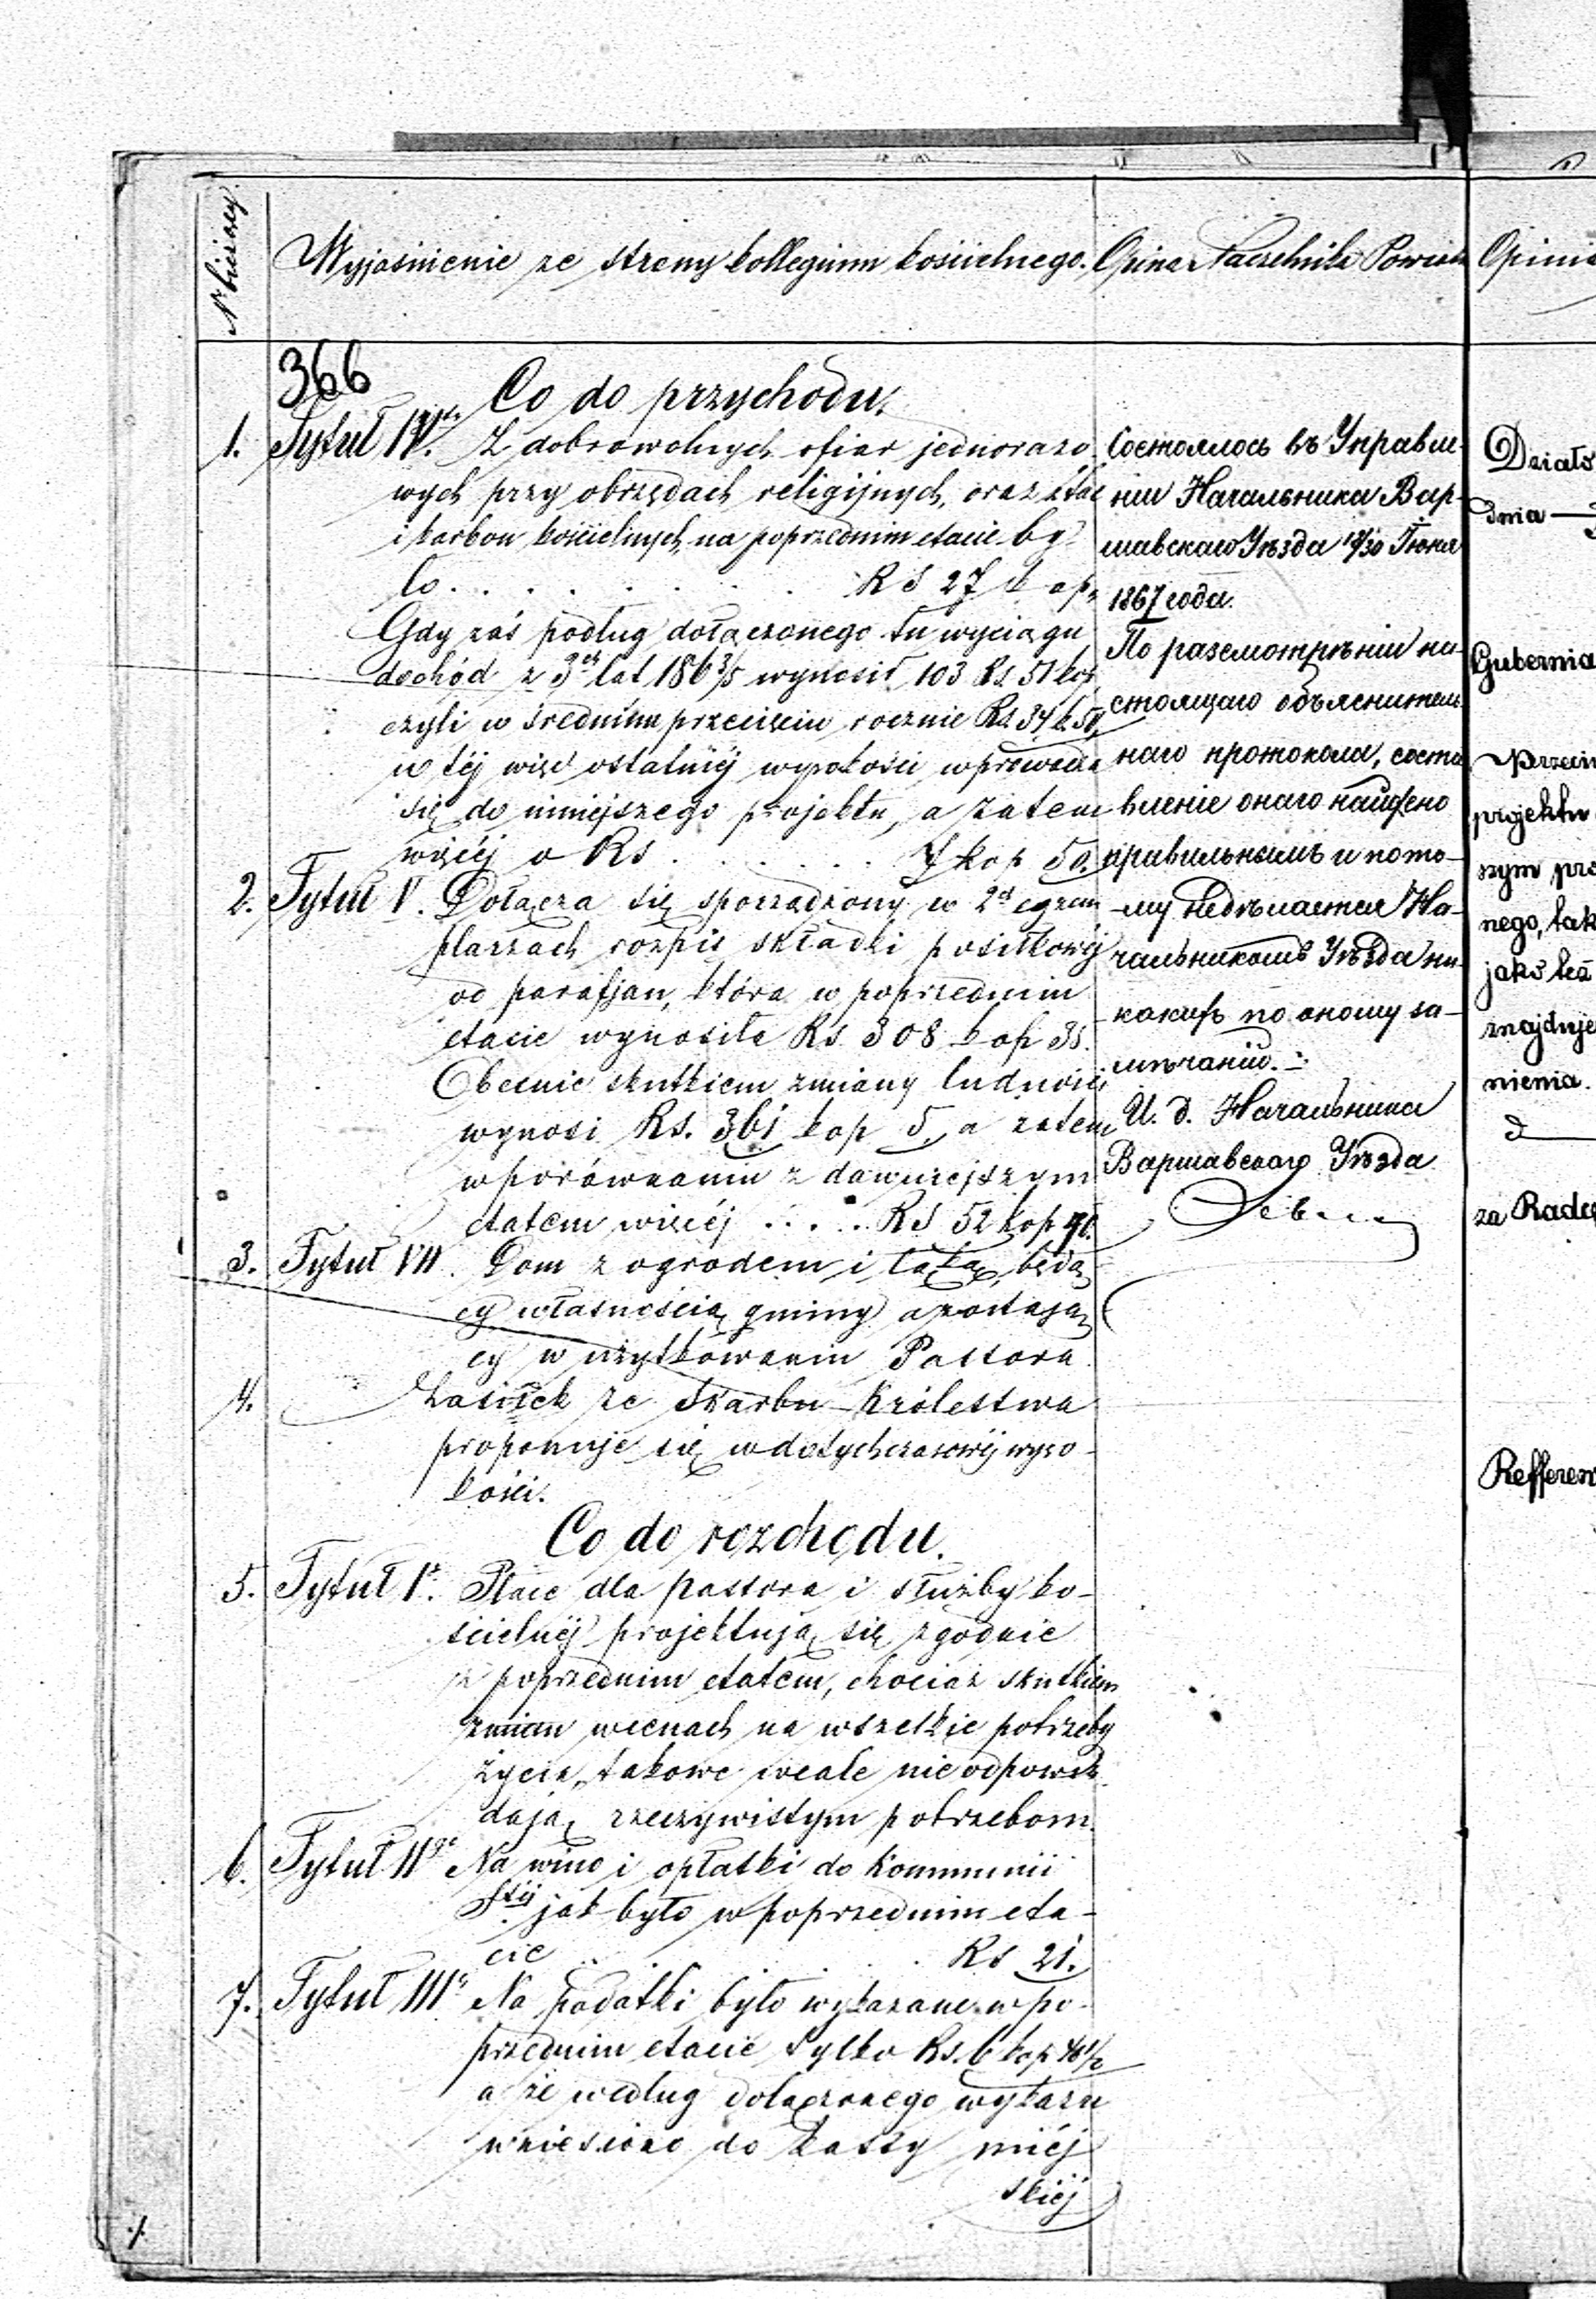 N bieżący
Wyjaśnienie ze strony kollegium kościelnego.
366
Co do przychodu.
1. Tytuł IV. Z dobrowolnych ofiar jednorazo
wych przy obrzędach religijnych, oraz
i karbon kościelnych, na poprzednim etacie by
ło . . . . . . . . RS 27 kop
Gdy zaś podług dołączonego tu wyciągu
dochód z 3ch lat 186 3/5 wynosił 103 Rs. 51 kop.
czyli w średnim przecięciu rocznie Rs. 34 k. 50,
w tej więc ostatniéj wysokości wprowadza
się do niniejszego projektu, a zatem
więcéj o Rs . . . . . . 7 kop 50.
2. Tytuł V. Dołącza się sporządzony w 2ch egzem
plarzach rozpis składki posiłkowéj
od parafjan, która w poprzednim
etacie wynosiła Rs. 308 kop 35.
Obecnie skutkiem zmiany ludności
wynosi Rs. 361 kop 5, a zatem
w porównaniu z dawniejszym
etatem więcéj . . . . RS 52 kop 70.
3. Tytuł VII. Dom z ogrodem i łąką, będą
cy własnością gminy a zostają
cy w użytkowaniu Pastora
4. Zasiłek ze Skarbu Królestwa
proponuje się w dotychczasowéj wyso-
kości.
Co do rozchodu.
5. Tytuł I. Płace dla pastora i służby ko-
ścielnéj projektują się zgodnie
z poprzednim etatem, chociaż skutkiem
zmian w cenach na wszelkie potrzeby
życia, takowe wcale nie odpowia
dają rzeczywistym potrzebom.
6. Tytuł II go Na wino i opłatki do Kommunii
Stéj jak było w poprzednim eta-
cie . . . . Rs 21.
7. Tytuł III Na podatki było wykazane w po-
przednim etacie tylko Rs. 6 kop 46 1/2
a że według dołączonego wykazu
wniesiono do kassy miéj
skiéj
Opinia Naczelnika Powiatu
Состоялось въ Управле-
ніи Начальника Вар-
шавскаго Уѣзда 18/30 Іюня
1867 года.
По разсмотрѣніи на-
стоящаго объяснитель
наго протокола, соста
вленіе онаго найдено
правильнымъ и пото-
му недѣлается На-
чальникомъ Уѣзда ни-
какихъ по оному за-
мѣчаній.
И. д. Начальника
Варшавскаго Уѣзда
Opinia
Działo
dnia
Gubernia
projektu
szym
nego, tak
jako też
znajduje
nienia.
d
za Radcę
Refferen